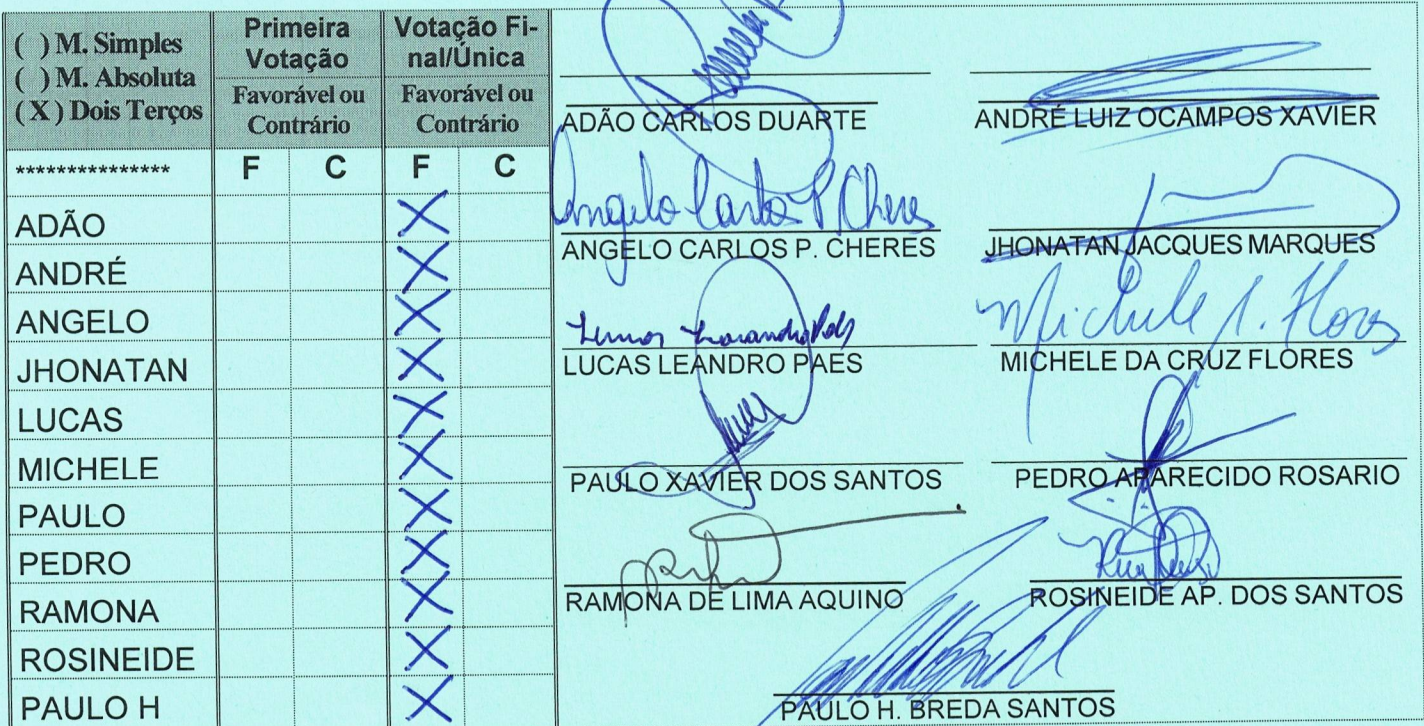 ( ) M. Simples
( ) M. Absoluta
( X ) Dois Terços
Primeira
Votação
Favorável ou
Contrário
Votação Fi-
nal/Única
Favorável ou
Contrário
***************
F C F C
ADÃO X
ANDRÉ X
ANGELO X
JHONATAN X
LUCAS X
MICHELE X
PAULO X
PEDRO X
RAMONA X
ROSINEIDE X
PAULO H X
ADÃO CARLOS DUARTE
ANDRÉ LUIZ OCAMPOS XAVIER
Angelo Carlos P. Cheres
ANGELO CARLOS P. CHERES
JHONATAN JACQUES MARQUES
LUCAS LEANDRO PAES
Flores
MICHELE DA CRUZ FLORES
PAULO XAVIER DOS SANTOS
PEDRO APARECIDO ROSARIO
RAMONA DE LIMA AQUINO
ROSINEIDE AP. DOS SANTOS
PAULO H. BREDA SANTOS